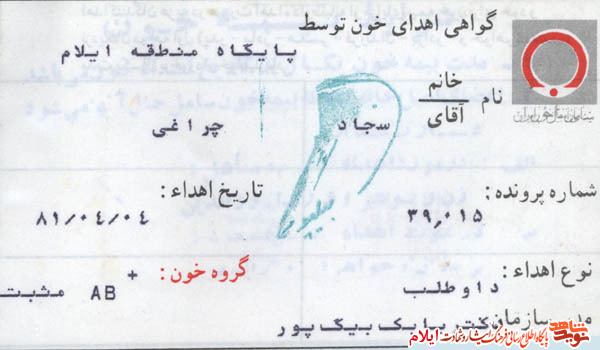 گواهی اهدای خون توسط
پایگاه منطقه ایلام
نام خانم
آقای
سجاد چراغی
سازمان انتقال خون ایران
شماره پرونده: ۳۹,۰۱۵
تاریخ اهداء: ۸۱/۰۴/۰۴
نوع اهداء: داوطلب
گروه خون: + AB مثبت
سازمان دکتر بابک بیگ پور
نوید شاهد
پایگاه اطلاع رسانی فرهنگ ایثار و شهادت ایلام